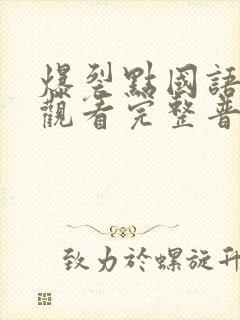 爆裂點國語
觀看完整普
致力於螺旋升